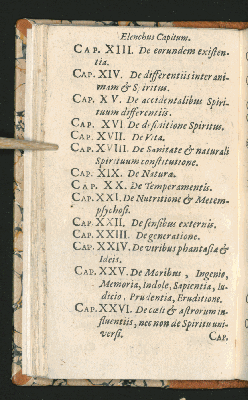 Elenchus Capitum.
CAP. XIII. De eorundem existen-
tia.
CAP. XIV. De differentiis inter ani-
mam & Spiritus.
CAP. XV. De accidentalibus Spiri-
tuum differentiis.
CAP. XVI De definitione Spiritus.
CAP. XVII. De Vita.
CAP. XVIII. De Sanitate & naturali
Spirituum constitutione.
CAP. XIX. De Natura.
CAP. XX. De Temperamentis.
CAP. XXI. De Nutritione & Metem-
psychosi.
CAP. XXII. De sensibus externis.
CAP. XXIII. De generatione.
CAP. XXIV. De viribus phantasiæ &
Ideis.
CAP. XXV. De Moribus, Ingenio,
Memoria, Indole, Sapientia, Iu-
dicio, Prudentia, Eruditione.
CAP. XXVI. De cæli & astrorum in-
fluentiis, nec non de Spiritu uni-
versi.
CAP.